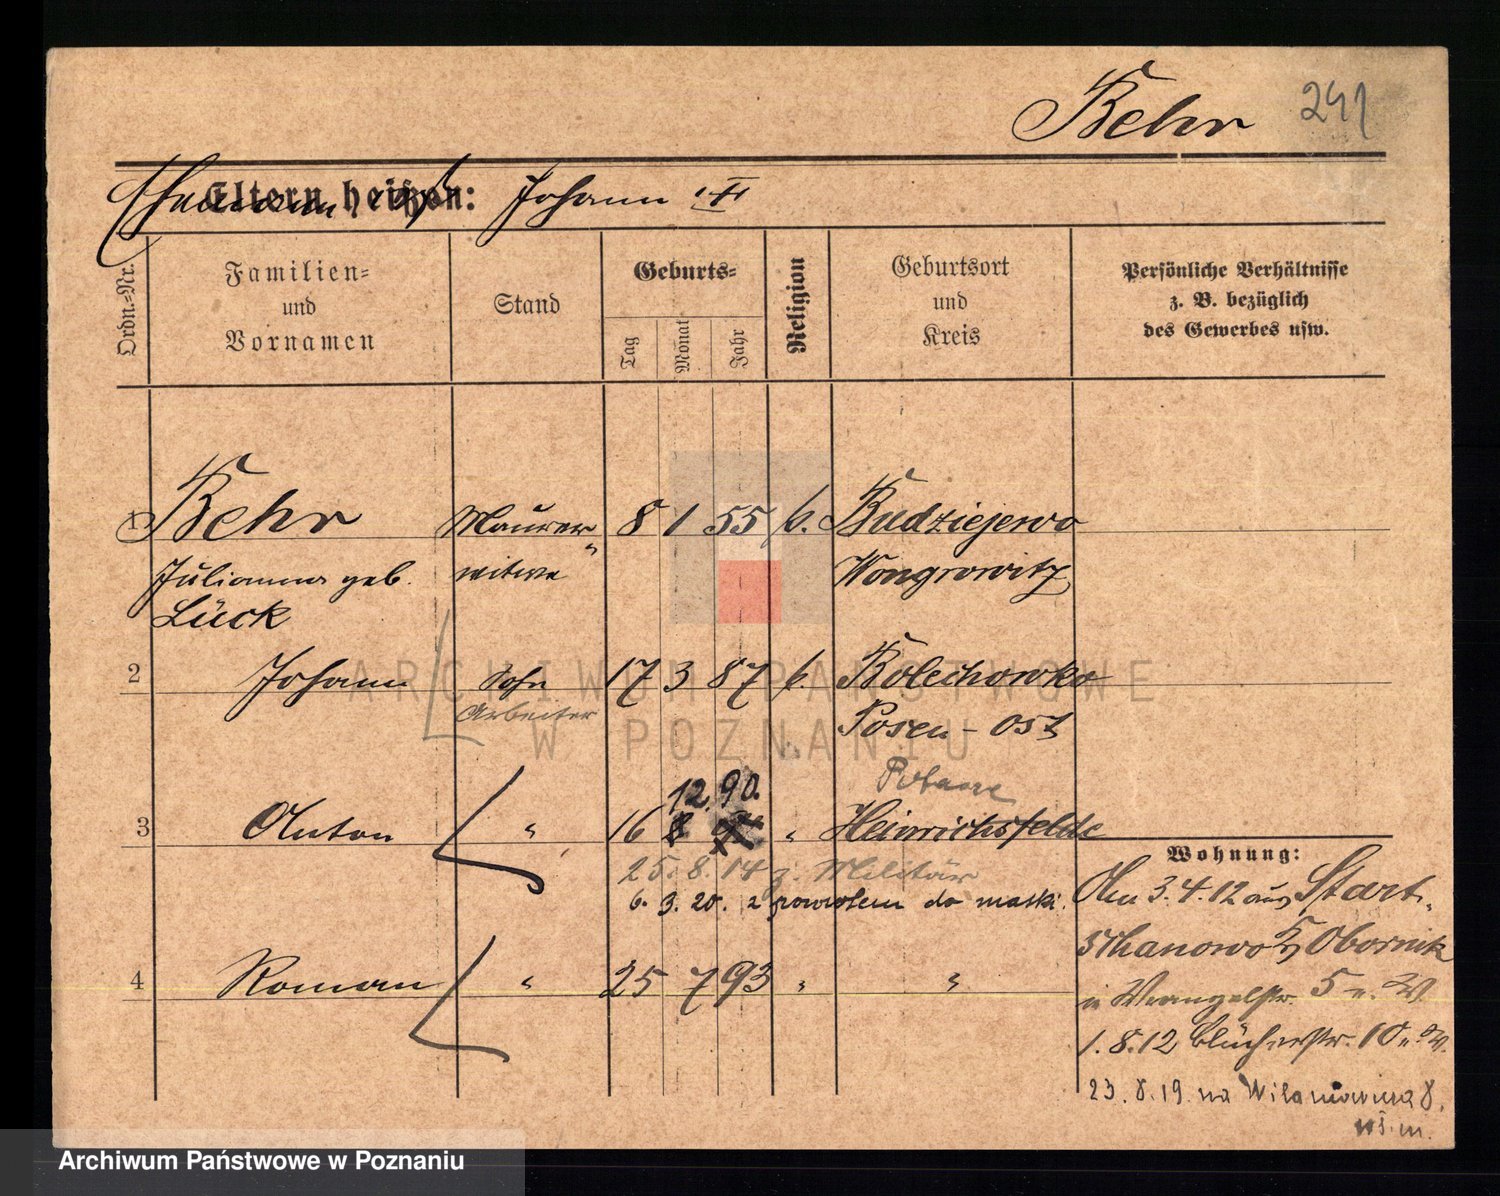 Behr 241
Eltern heißen: Johann
Ordn.=Nr.
Familien=
und
Vornamen
Stand
Geburts=
Tag
Monat
Jahr
Religion
Geburtsort
und
Kreis
Persönliche Verhältnisse
z. B. bezüglich
des Gewerbes usw.
1 Behr Maurer- 8 1 55 k. Budziejewo
Julianna geb. witwe Wongrowitz
Lück
2 Johann Sohn 17 3 87 k. Bolechowko
Arbeiter Posen-Ost
12. 90.
3 Anton " 16 8 " Heinrichsfelde
25. 8. 14 z. Militär
6. 3. 20. z powrotem do matki.
4 Roman " 25 7 93 " "
Wohnung:
Am 3.4.12 aus
Obornik
in Wrangelstr. 5 u. W.
1. 8. 12 Blücherstr. 10 u. W.
23. 8. 19. na 8.
ARCHIWUM PAŃSTWOWE
W POZNANIU
Archiwum Państwowe w Poznaniu